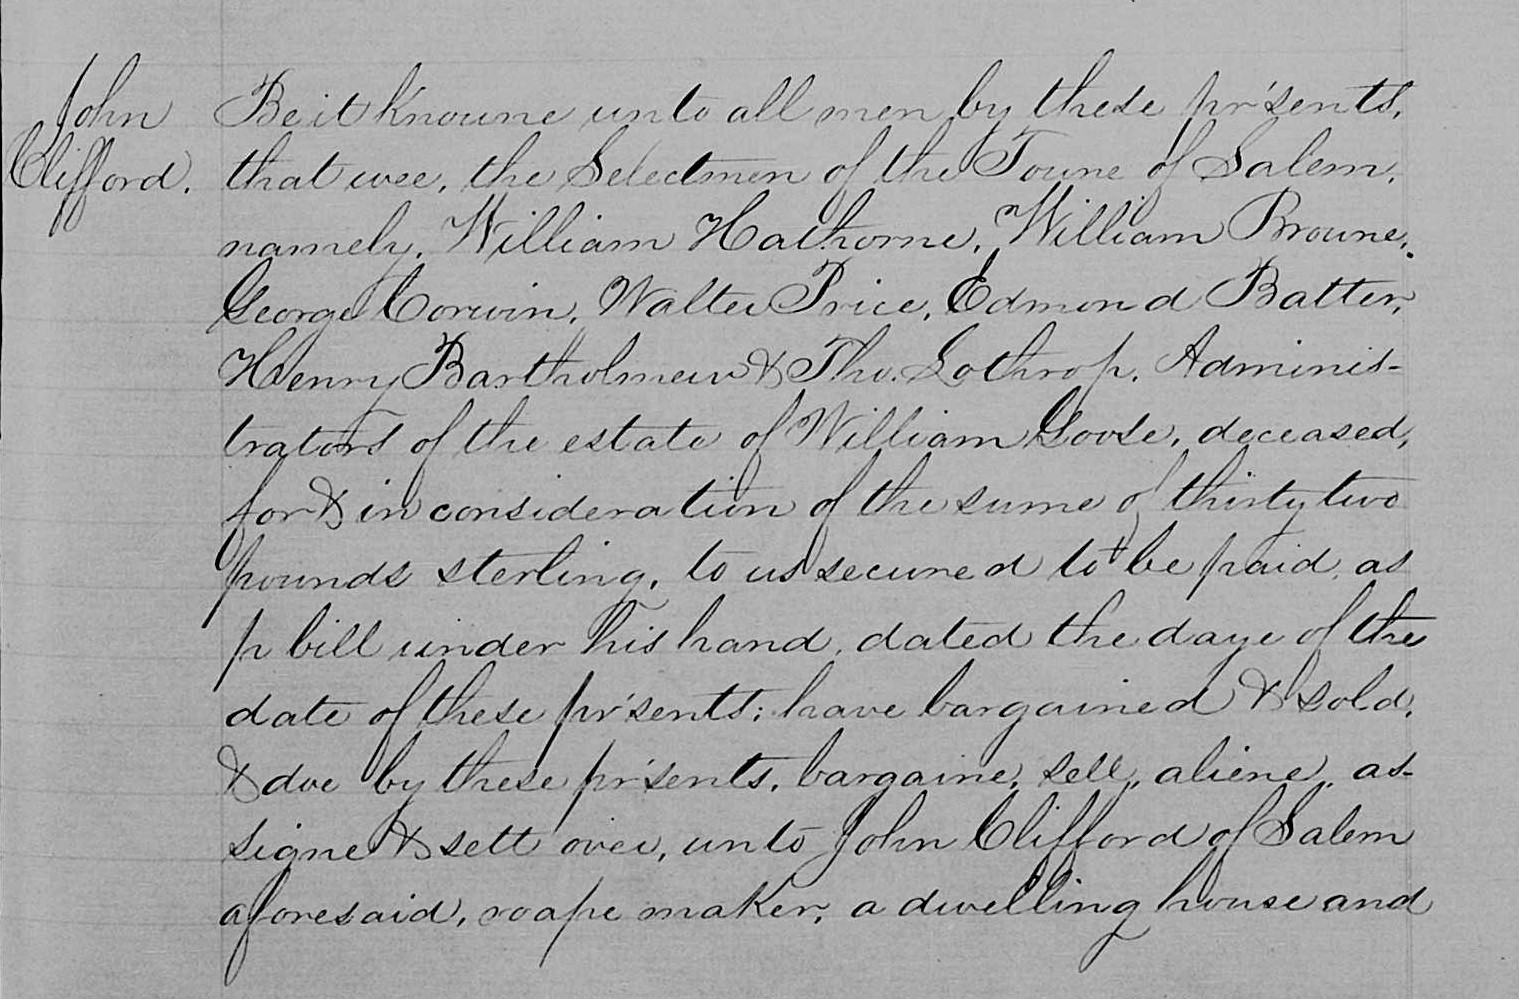 John
Clifford.
Be it Knowne unto all men by these pr'sents,
that wee, the Selectmen of the Towne of Salem,
namely, William Hathorne, William Browne,
George Corwin, Walter Price, Edmond Batter,
Henry Bartholmew & Tho. Lothrop, Adminis-
trators of the estate of William Goose, deceased,
for & in consideration of the sume of thirty two
pounds sterling, to us secured to be paid, as
p bill under his hand, dated the daye of the
date of these pr'sents; have bargained & sold,
& doe by these pr'sents, bargaine, sell, aliene, as-
signe & sett over, unto John Clifford of Salem
aforesaid, roape maker, a dwelling house and